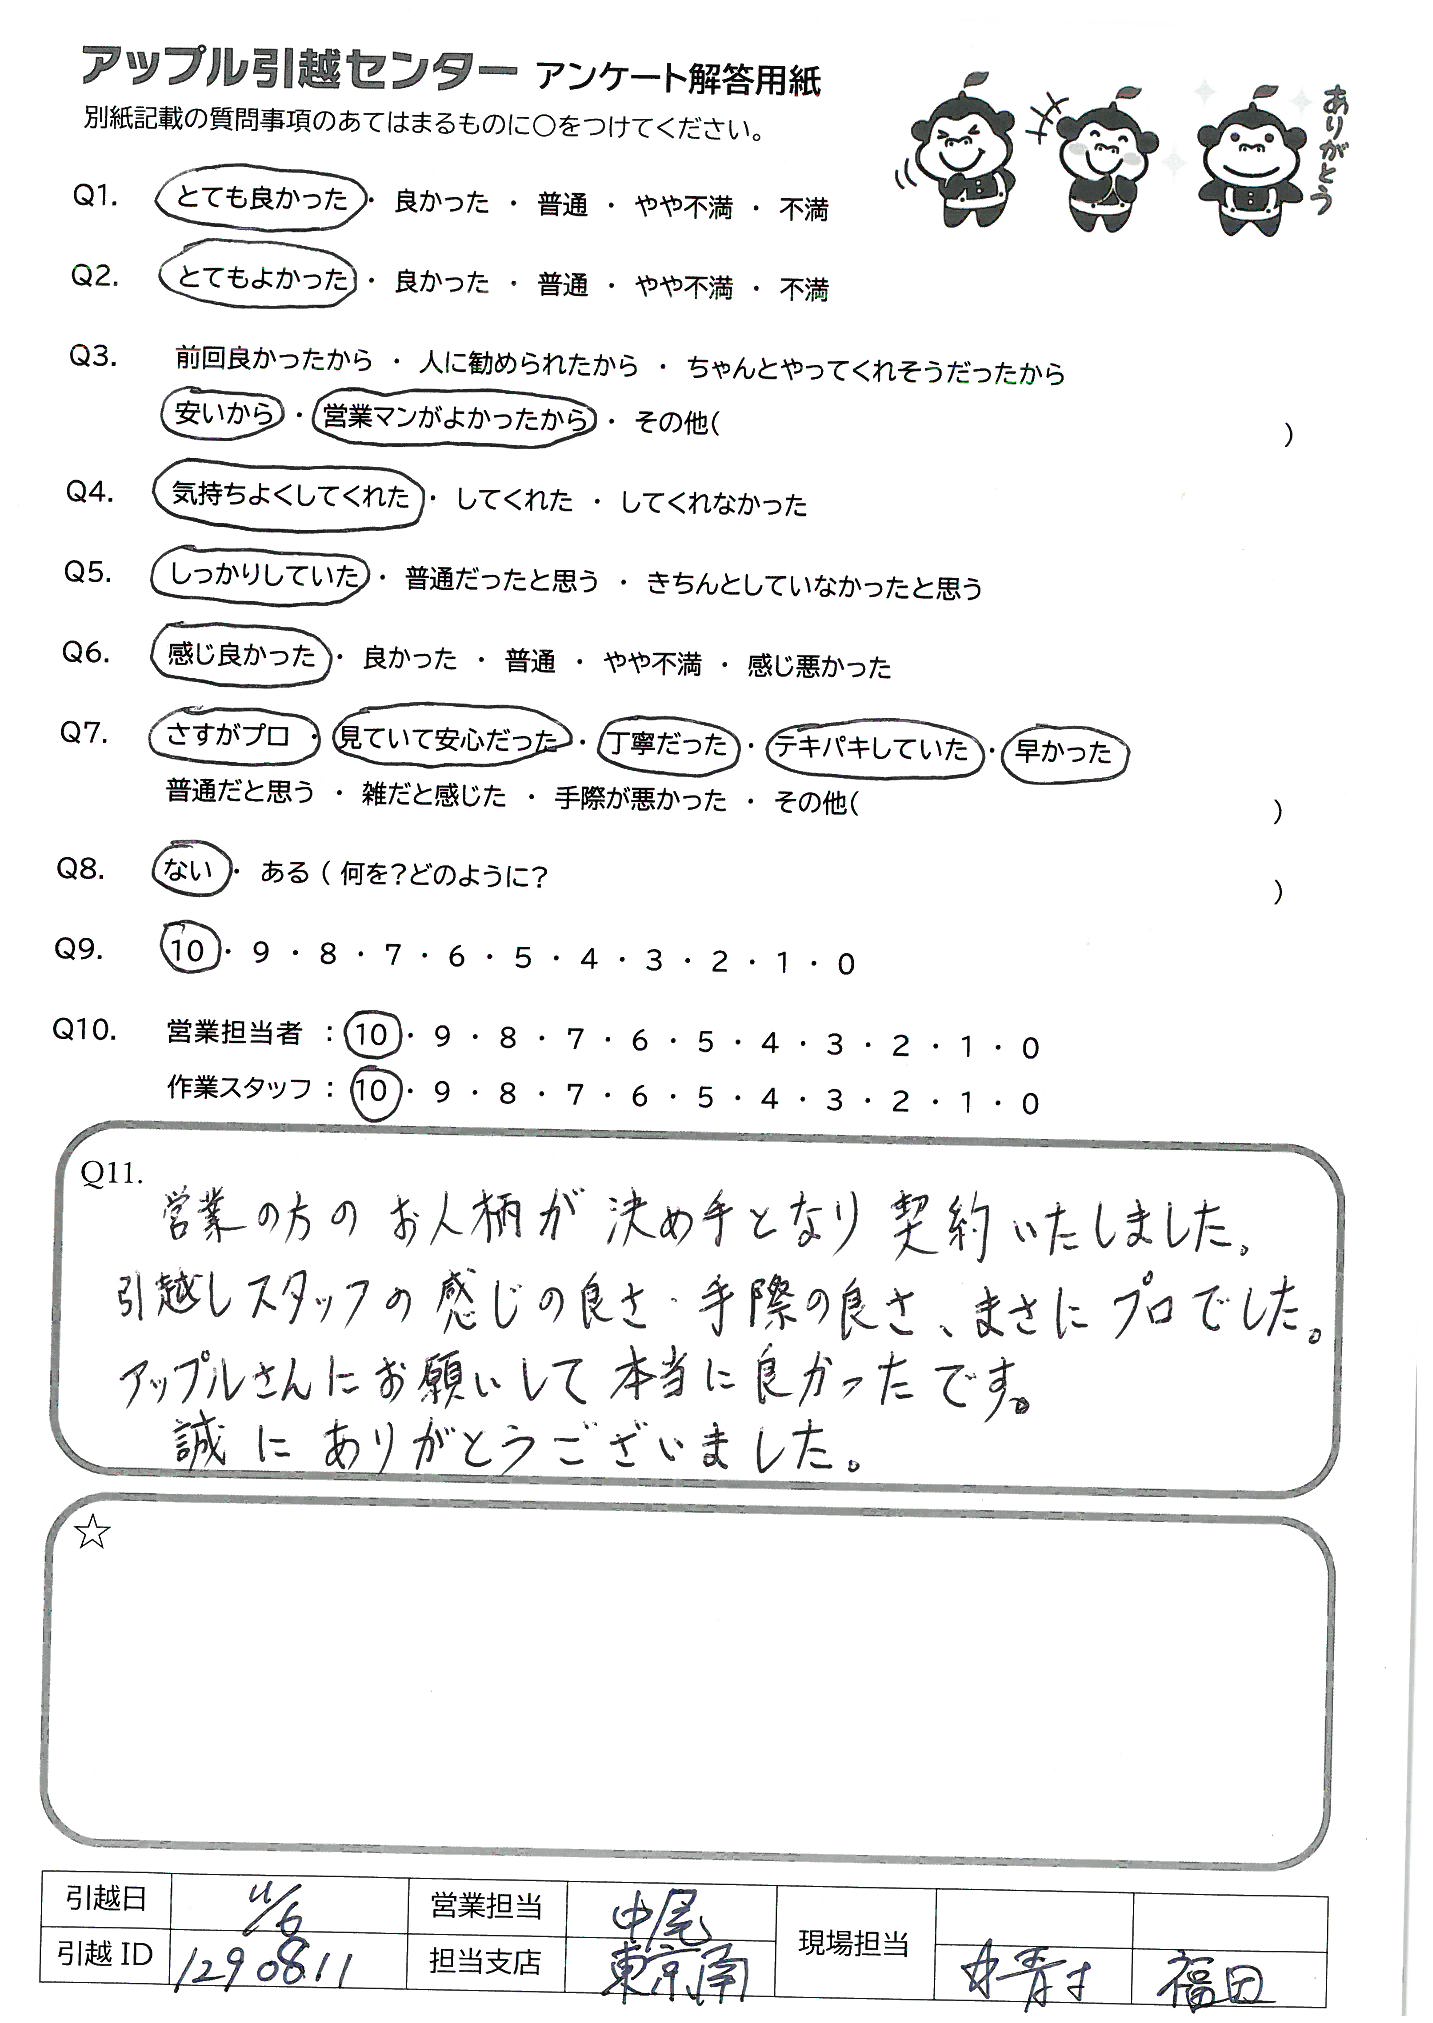 アップル引越センター アンケート解答用紙
別紙記載の質問事項のあてはまるものに○をつけてください。
ありがとう
Q1. とても良かった ・ 良かった ・ 普通 ・ やや不満 ・ 不満
Q2. とてもよかった ・ 良かった ・ 普通 ・ やや不満 ・ 不満
Q3. 前回良かったから ・ 人に勧められたから ・ ちゃんとやってくれそうだったから
安いから ・ 営業マンがよかったから ・ その他( )
Q4. 気持ちよくしてくれた ・ してくれた ・ してくれなかった
Q5. しっかりしていた ・ 普通だったと思う ・ きちんとしていなかったと思う
Q6. 感じ良かった ・ 良かった ・ 普通 ・ やや不満 ・ 感じ悪かった
Q7. さすがプロ ・ 見ていて安心だった ・ 丁寧だった ・ テキパキしていた ・ 早かった
普通だと思う ・ 雑だと感じた ・ 手際が悪かった ・ その他( )
Q8. ない ・ ある ( 何を?どのように? )
Q9. 10 ・ 9 ・ 8 ・ 7 ・ 6 ・ 5 ・ 4 ・ 3 ・ 2 ・ 1 ・ 0
Q10. 営業担当者 : 10 ・ 9 ・ 8 ・ 7 ・ 6 ・ 5 ・ 4 ・ 3 ・ 2 ・ 1 ・ 0
作業スタッフ : 10 ・ 9 ・ 8 ・ 7 ・ 6 ・ 5 ・ 4 ・ 3 ・ 2 ・ 1 ・ 0
Q11.
営業の方の お人柄が 決め手となり 契約いたしました。
引越しスタッフの 感じの良さ・手際の良さ、まさに プロでした。
アップルさんにお願いして 本当に良かったです。
誠に ありがとうございました。
☆
引越日 11/6 営業担当 中尾 現場担当
引越 ID 1290811 担当支店 東京南 福田